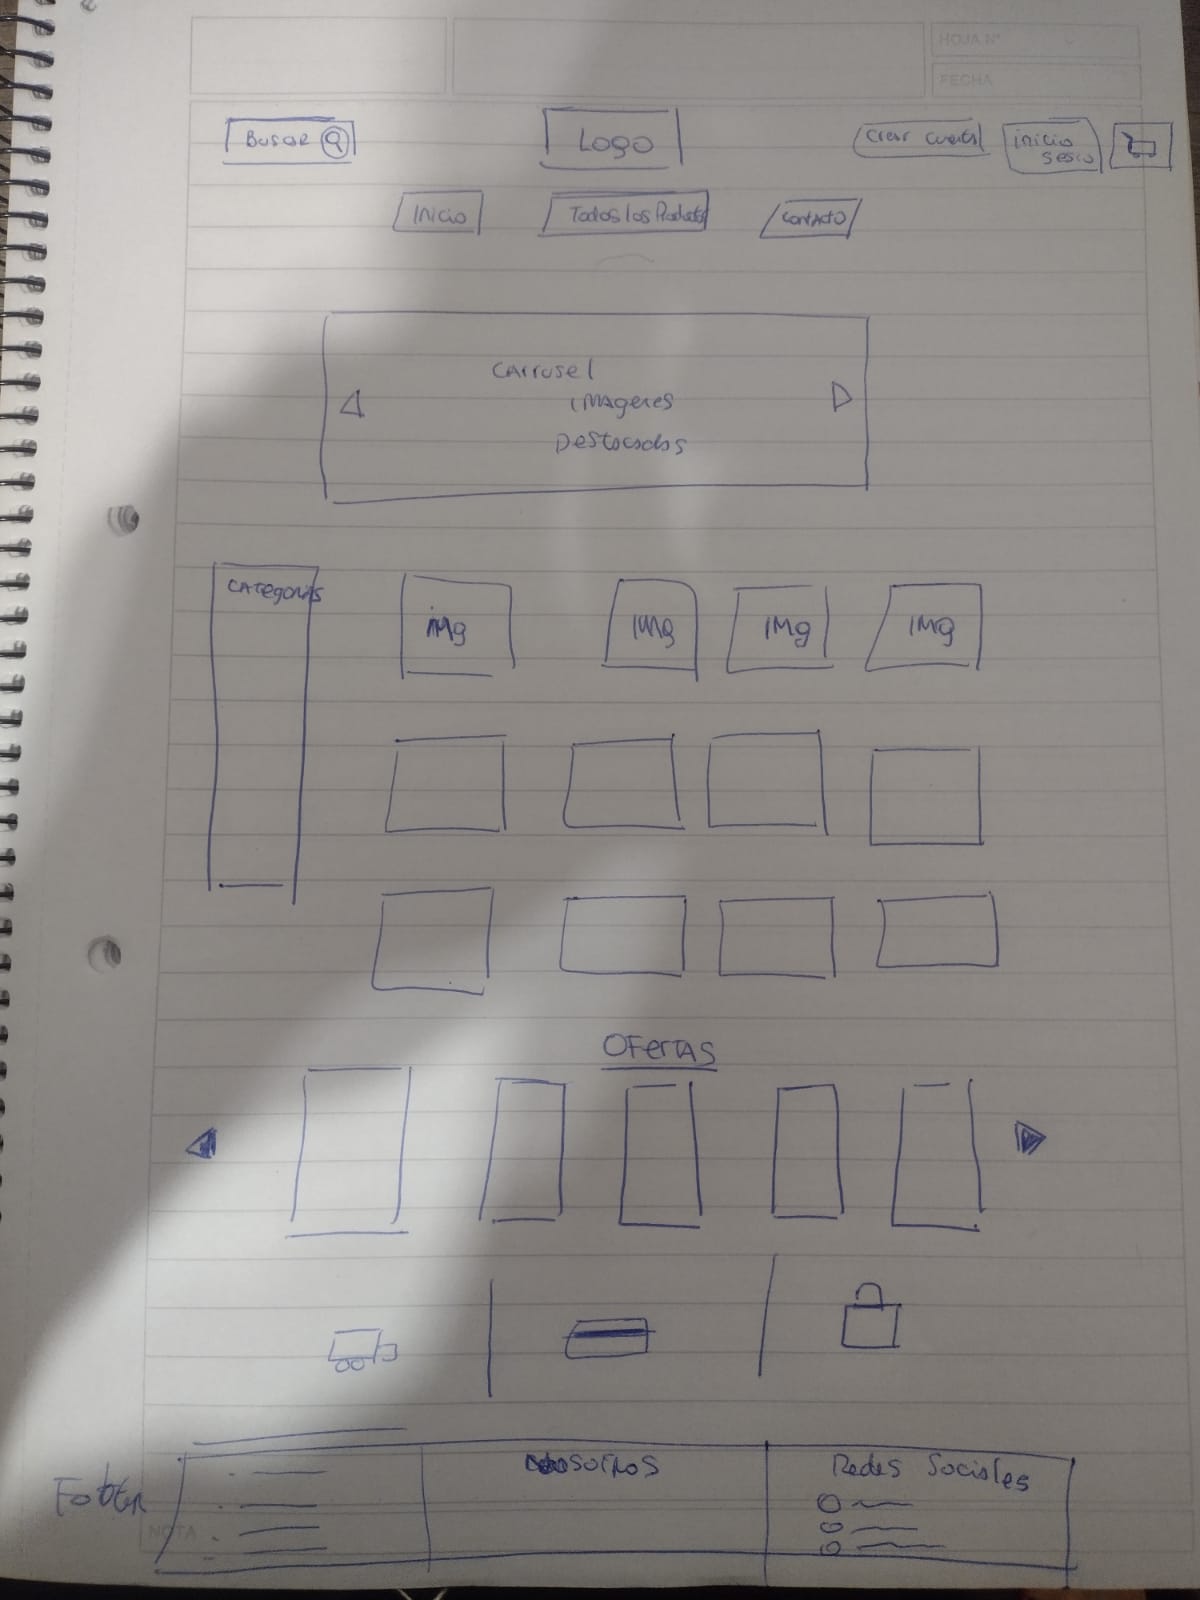 HOJA N°
FECHA
Buscar
Logo
Crear cuenta
inicio
sesio
Inicio
Todos los Productos
Contacto
Carrusel
IMAgenes
Destacados
CATegorias
iMg
IMg
IMg
IMg
OFerTAS
Footer
Nosotros
Redes Sociales
NOTA